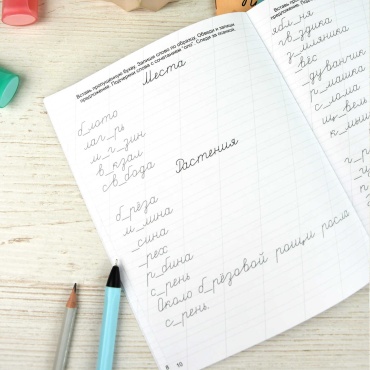 Вставь пропущенную букву. Запиши слова по образцу. Обведи и запиши
предложение. Подчеркни слова с сочетанием "оло". Следи за осанкой.
Места
б_лото
лаг_рь
м_г_зин
в_кзал
св_бода
Растения
б_рёза
м_лина
_сина
_рех
р_бина
с_рень
Около б_рёзовой рощи росла
с_рень.
10
Вставь
предложение.
ябл_ня
гв_здика
з_мляника
_вёс
_дуванчик
р_машка
с_лома
щ_вель